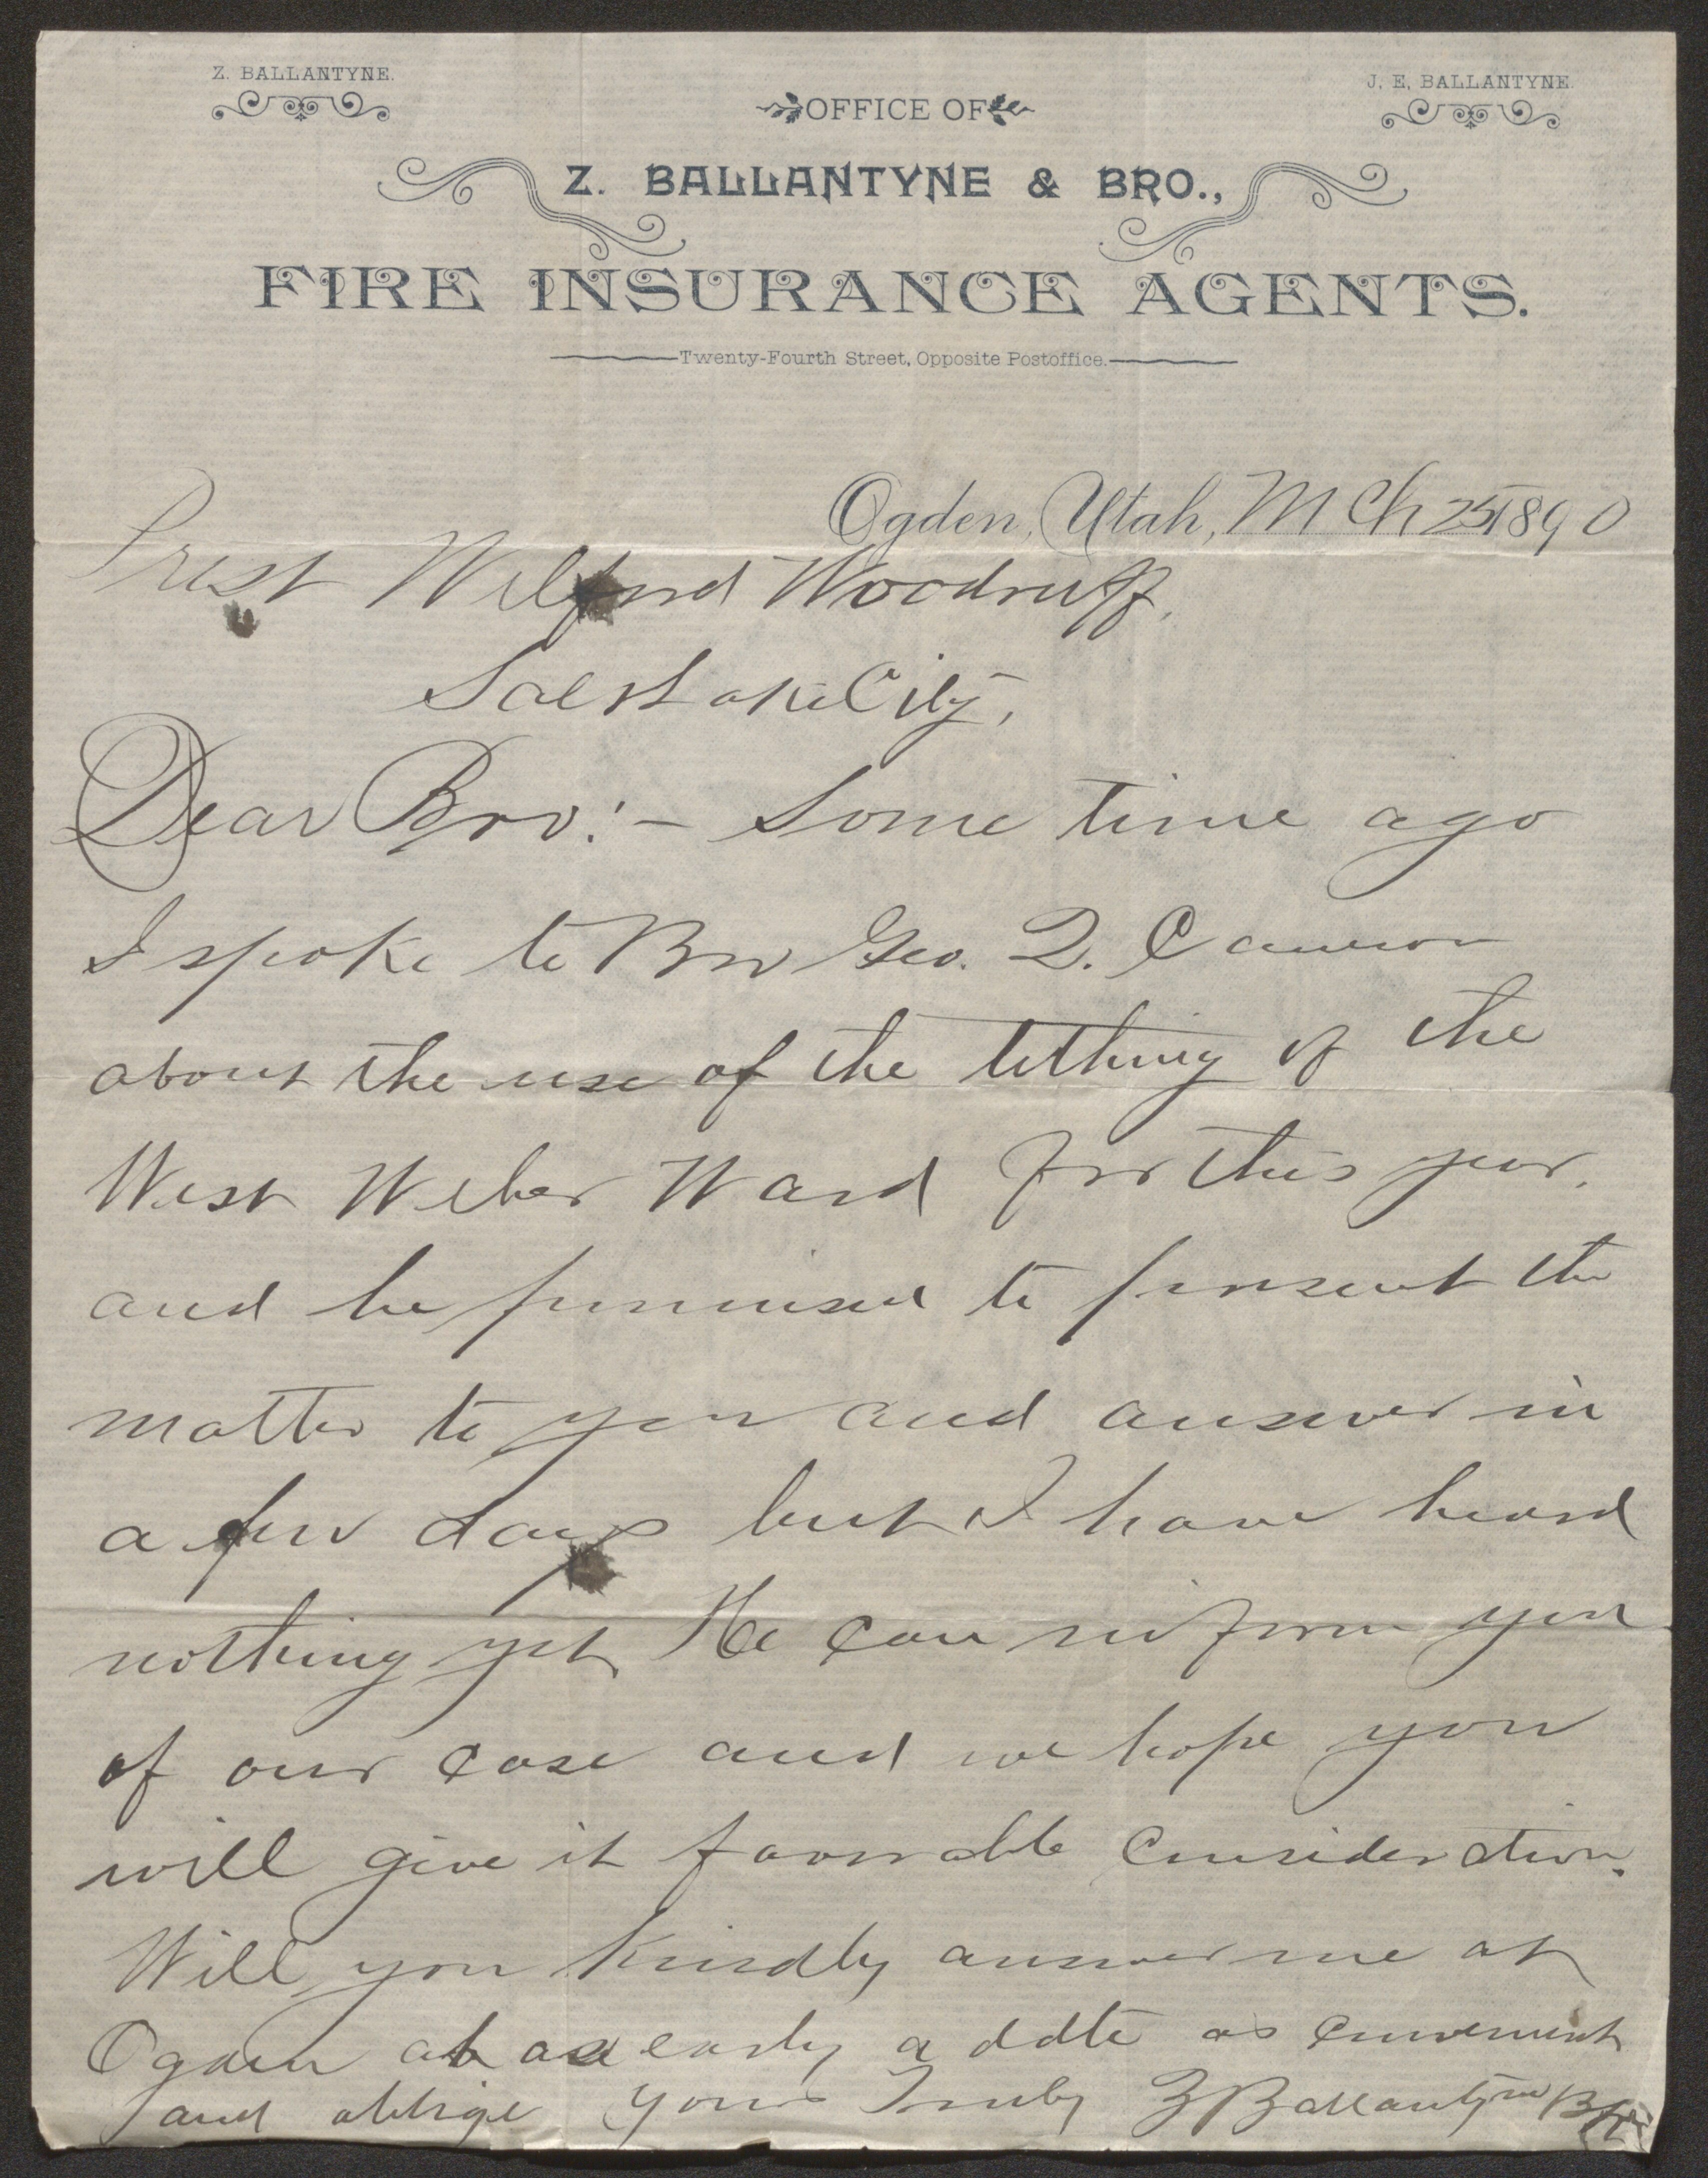 Z. BALLANTYNE.
J. E. BALLANTYNE.
OFFICE OF
Z. BALLANTYNE & BRO.,
FIRE INSURANCE AGENTS.
Twenty-Fourth Street, Opposite Postoffice.
Ogden, Utah, Mch 25 1890
Prest Wilford Woodruff,
Salt Lake City,
Dear Bro:- Some time ago
I spoke to Bro Geo. Q. Cannon
about the use of the tithing of the
West Weber Ward for this year.
and he promised to present the
matter to you and answer in
a few days but I have heard
nothing yet He can inform you
of our case and we hope you
will give it favorable consideration.
Will you kindly answer me at
Ogden at as early a date as convenient
and oblige Yours Truly Z Ballantyne